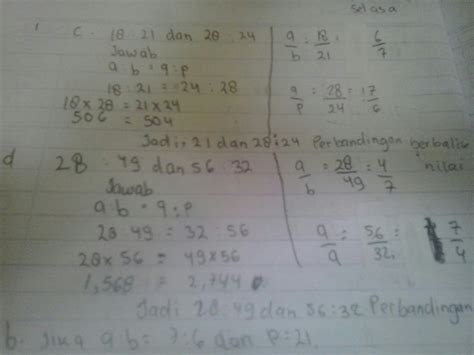 selasa
c. 18 : 21 dan 28 : 24
Jawab
a : b = q : p
18 : 21 = 24 : 28
18 x 28 = 21 x 24
506 = 504
a/b : 18/21 : 6/7
q/p = 28/24 : 17/6
Jadi : 21 dan 28 : 24 Perbandingan berbalik nilai
d 28 : 49 dan 56 : 32
Jawab
a b = q : p
28 49 = 32 : 56
28 x 56 = 49 x 56
1,568 = 2,744
a/b = 28/49 : 4/7
q/q = 56/32 : 7/4
Jadi 28 : 49 dan 56 : 32 Perbandingan
b. Jika a : b = 7 : 6 dan P = 21